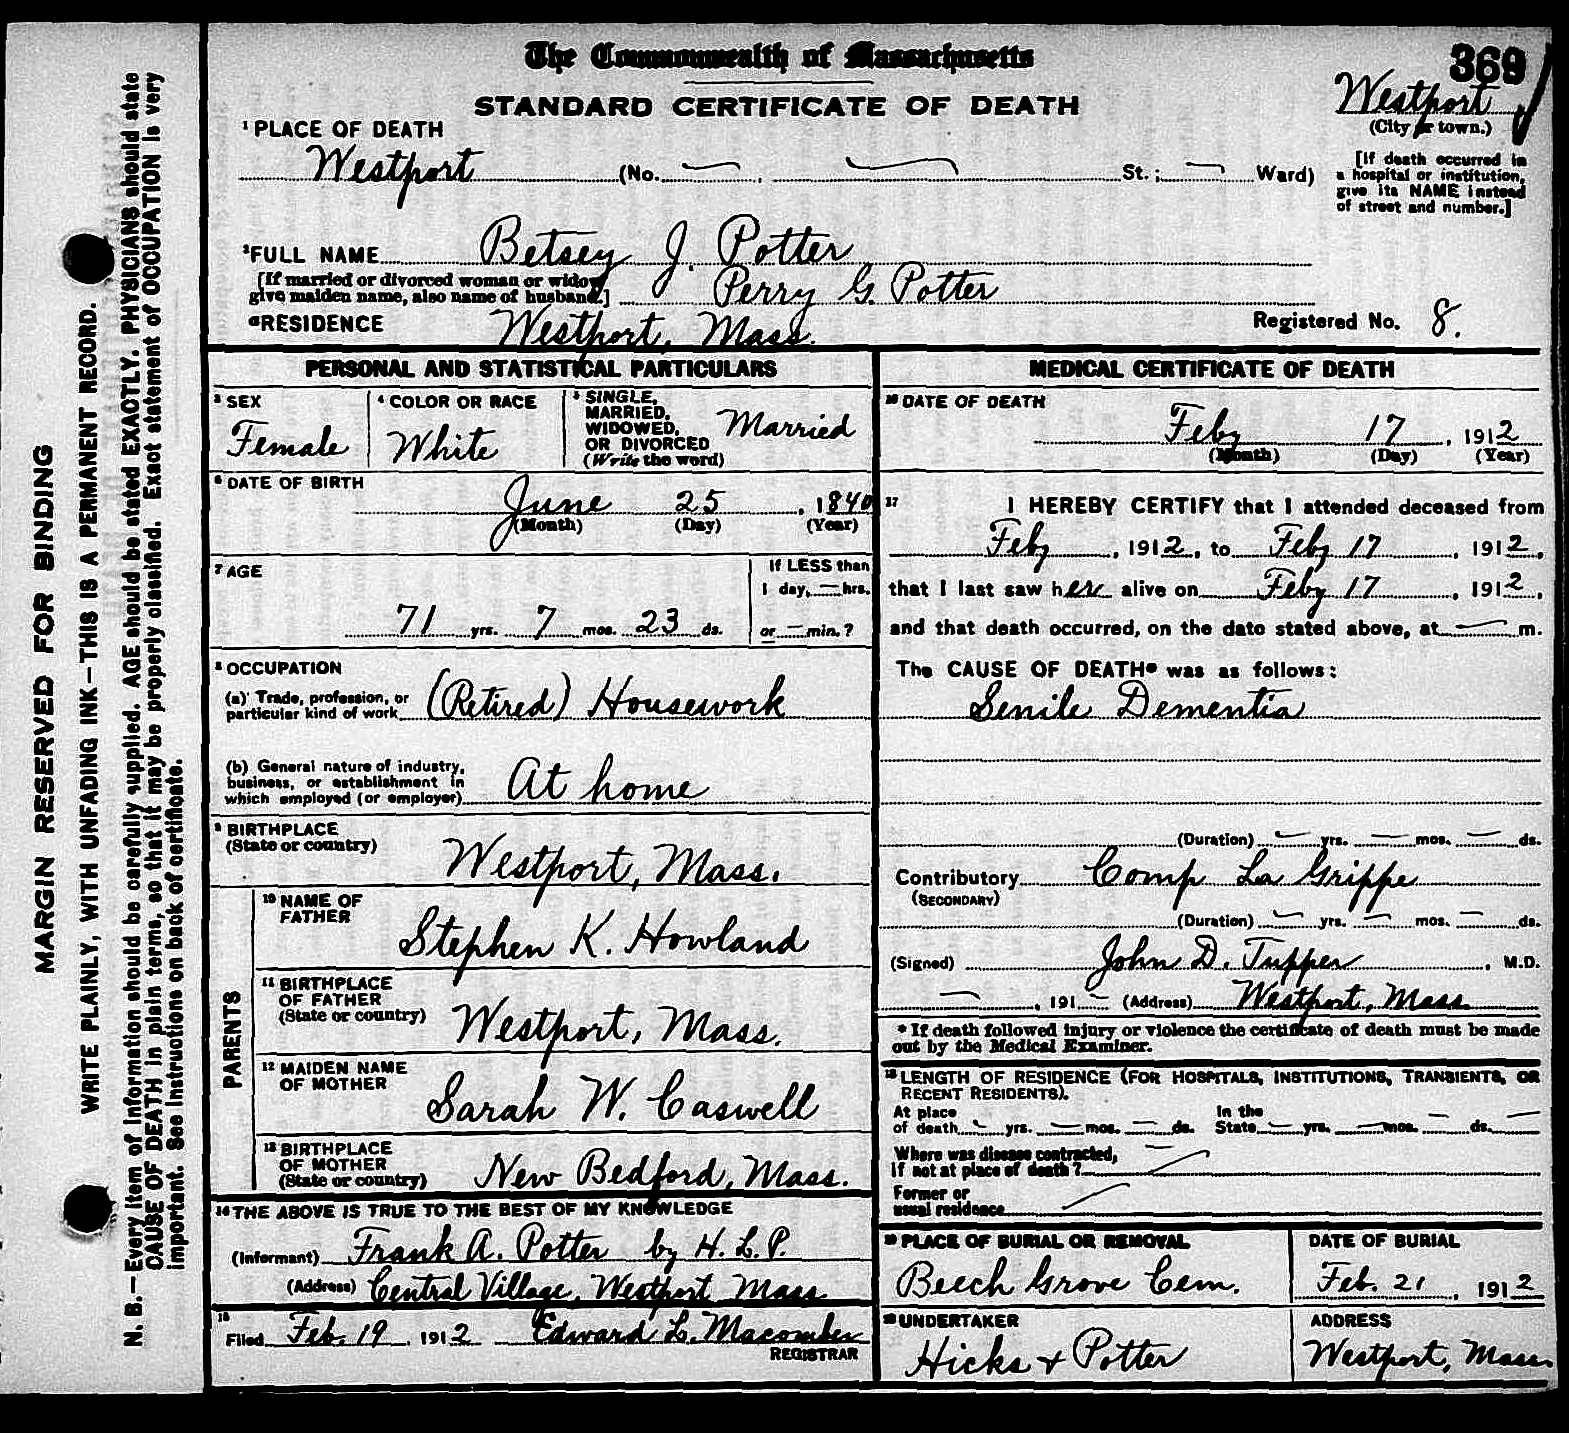 MARGIN RESERVED FOR BINDING
WRITE PLAINLY, WITH UNFADING INK—THIS IS A PERMANENT RECORD.
N. B.—Every item of information should be carefully supplied. AGE should be stated EXACTLY. PHYSICIANS should state
CAUSE OF DEATH in plain terms, so that it may be properly classified. Exact statement of OCCUPATION is very
important. See instructions on back of certificate.
The Commonwealth of Massachusetts
369
STANDARD CERTIFICATE OF DEATH
Westport
(City or town.)
1 PLACE OF DEATH
Westport (No. — , — St.; — Ward)
[If death occurred in
a hospital or institution,
give its NAME instead
of street and number.]
2 FULL NAME Betsey J. Potter
[If married or divorced woman or widow
give maiden name, also name of husband.] Perry G. Potter
RESIDENCE Westport, Mass.
Registered No. 8.
PERSONAL AND STATISTICAL PARTICULARS
3 SEX
Female
4 COLOR OR RACE
White
5 SINGLE,
MARRIED,
WIDOWED,
OR DIVORCED
(Write the word)
Married
6 DATE OF BIRTH
June 25, 1840
(Month) (Day) (Year)
7 AGE
71 yrs. 7 mos. 23 ds.
If LESS than
1 day, — hrs.
or — min.?
8 OCCUPATION
(a) Trade, profession, or
particular kind of work (Retired) Housework
(b) General nature of industry,
business, or establishment in
which employed (or employer) At home
9 BIRTHPLACE
(State or country)
Westport, Mass.
PARENTS
10 NAME OF
FATHER
Stephen K. Howland
11 BIRTHPLACE
OF FATHER
(State or country)
Westport, Mass.
12 MAIDEN NAME
OF MOTHER
Sarah W. Caswell
13 BIRTHPLACE
OF MOTHER
(State or country)
New Bedford, Mass.
14 THE ABOVE IS TRUE TO THE BEST OF MY KNOWLEDGE
(Informant) Frank A. Potter by H. L. P.
(Address) Central Village, Westport Mass
15
Filed Feb. 19, 1912 Edward L. Macomber
REGISTRAR
MEDICAL CERTIFICATE OF DEATH
16 DATE OF DEATH
Feby 17, 1912
(Month) (Day) (Year)
17 I HEREBY CERTIFY that I attended deceased from
Feby, 1912, to Feby 17, 1912,
that I last saw her alive on Feby 17, 1912,
and that death occurred, on the date stated above, at — m.
The CAUSE OF DEATH* was as follows:
Senile Dementia
(Duration) — yrs. — mos. — ds.
Contributory Comp La Grippe
(SECONDARY)
(Duration) — yrs. — mos. — ds.
(Signed) John D. Tupper, M.D.
—, 191 — (Address) Westport, Mass
* If death followed injury or violence the certificate of death must be made
out by the Medical Examiner.
18 LENGTH OF RESIDENCE (FOR HOSPITALS, INSTITUTIONS, TRANSIENTS, OR
RECENT RESIDENTS).
At place
of death — yrs. — mos. — ds.
In the
State — yrs. — mos. — ds. —
Where was disease contracted,
If not at place of death? —
Former or
usual residence —
19 PLACE OF BURIAL OR REMOVAL
Beech Grove Cem.
DATE OF BURIAL
Feb. 21, 1912
20 UNDERTAKER
Hicks & Potter
ADDRESS
Westport, Mass.